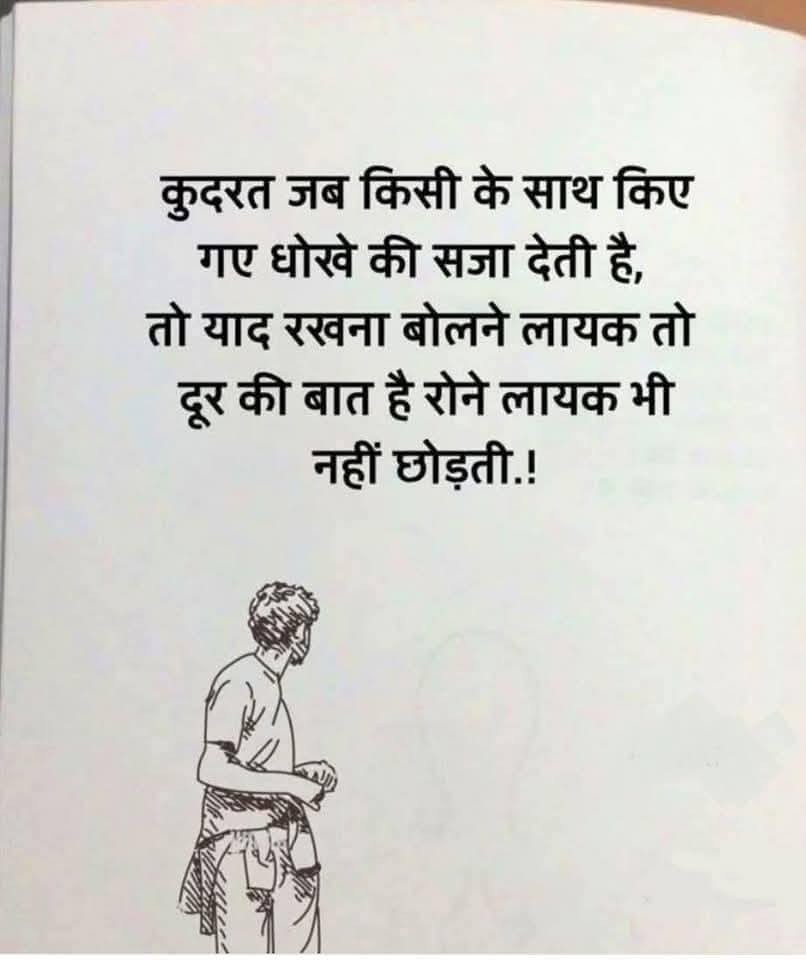 कुदरत जब किसी के साथ किए
गए धोखे की सजा देती है,
तो याद रखना बोलने लायक तो
दूर की बात है रोने लायक भी
नहीं छोड़ती.!